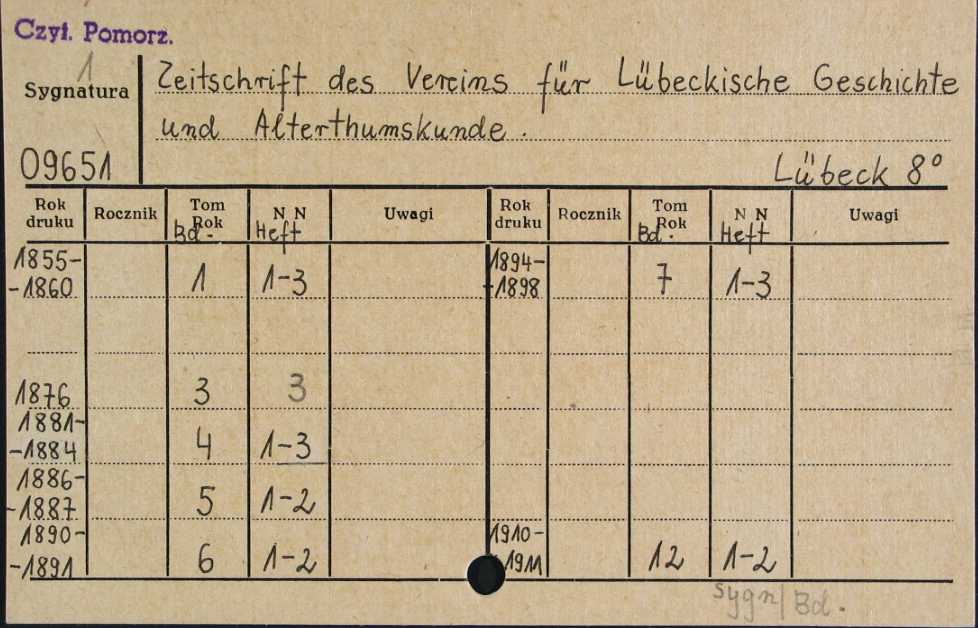 Czyt. Pomorz.
1
Sygnatura
Zeitschrift des Vereins für Lübeckische Geschichte
und Alterthumskunde.
09651
Lübeck 8°
Rok druku Rocznik Tom Rok Bd. N N Heft Uwagi Rok druku Rocznik Tom Rok Bd. N N Heft Uwagi
1855-
-1860 1 1-3
1894-
-1898 7 1-3
1876 3 3
1881-
-1884 4 1-3
1886-
-1887 5 1-2
1890-
-1891 6 1-2
1910-
-1911 12 1-2
sygn/Bd.